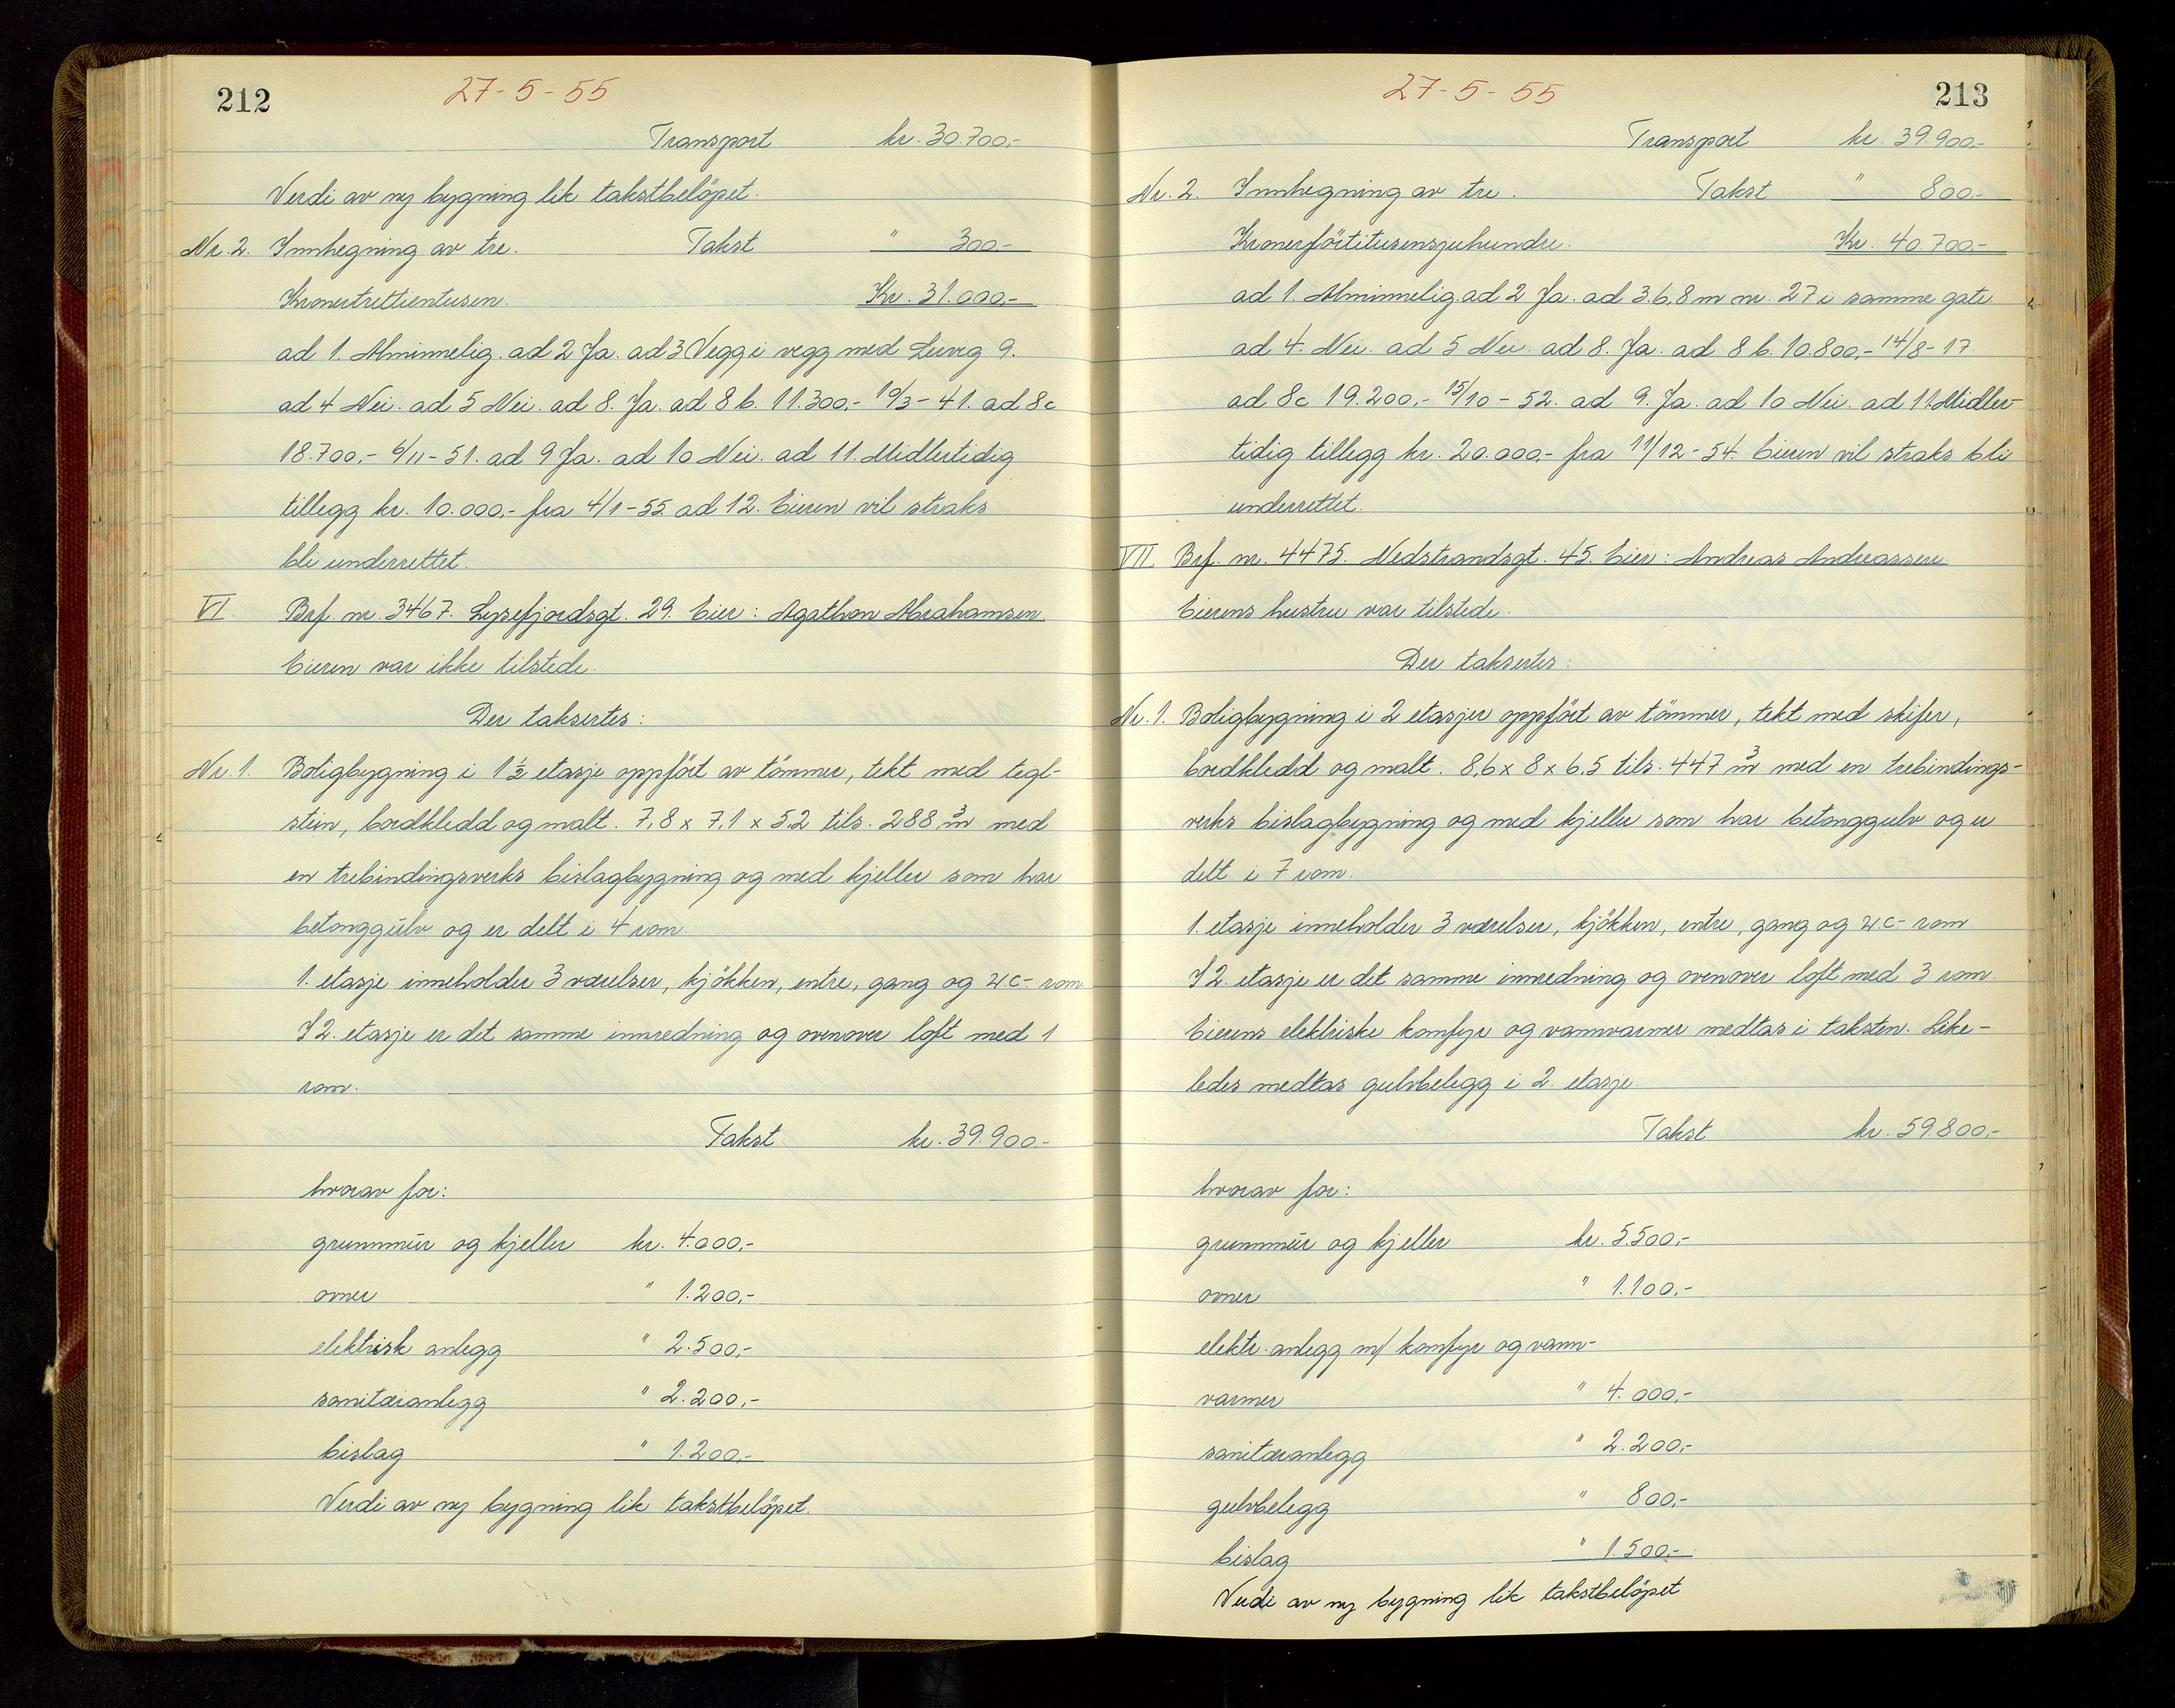 212
27-5-55
Transport kr. 30.700,-
Verdi av ny bygning lik takstbelöpet.
Nr. 2. Innhegning av tre. Takst " 300.-
Kronertrettientusen. Kr. 31.000,-
ad 1. Alminnelig. ad 2 Ja. ad 3 Vegg i vegg med Lervig 9.
ad 4 Nei. ad 5 Nei. ad 8. Ja. ad 8 b. 11.300,- 19/3-41. ad 8c
18.700,- 6/11-51. ad 9 Ja. ad 10 Nei. ad 11. Midlertidig
tillegg kr. 10.000,- fra 4/1-55. ad 12. Eieren vil straks
bli underrettet.
VI. Brf. nr. 3467. Lysefjordsgt. 29. Eier: Agathon Abrahamsen
Eieren var ikke tilstede.
Der taksertes:
Nr. 1. Boligbygning i 1 1/2 etasje oppfört av tömmer, tekt med tegl-
stein, bordkledd og malt. 7,8 x 7,1 x 5,2 tils. 288 m³ med
en trebindingsverks bislagbygning og med kjeller som har
betonggulv og er delt i 4 rom.
1. etasje inneholder 3 værelser, kjökken, entre, gang og w.c.- rom.
I 2. etasje er det samme innredning og ovenover loft med 1
rom.
Takst kr. 39.900.-
hvorav for:
grunnmur og kjeller kr. 4.000,-
ovner " 1.200,-
elektrisk anlegg " 2.500,-
sanitæranlegg " 2.200,-
bislag " 1.200,-
Verdi av ny bygning lik takstbelöpet.
213
27-5-55
Transport kr. 39.900.-
Nr. 2. Innhegning av tre. Takst " 800.-
Kronerförtitusensjuhundre. Kr. 40.700.-
ad 1. Alminnelig. ad 2 Ja. ad 3. 6,8 m nr. 27 i samme gate.
ad 4. Nei. ad 5 Nei. ad 8. Ja. ad 8 b. 10.800,- 14/8-17.
ad 8c 19.200,- 15/10-52. ad 9. Ja. ad 10 Nei. ad 11. Midler-
tidig tillegg kr. 20.000,- fra 11/12-54. Eieren vil straks bli
underrettet.
VII. Brf. nr. 4475. Nedstrandsgt. 45. Eier: Andreas Andreassen
Eierens hustru var tilstede.
Der taksertes:
Nr. 1. Boligbygning i 2 etasjer oppfört av tömmer, tekt med skifer,
bordkledd og malt. 8,6 x 8 x 6,5 tils. 447 m³ med en trebindings-
verks bislagbygning og med kjeller som har betonggulv og er
delt i 7 rom.
1. etasje inneholder 3 værelser, kjökken, entre, gang og w.c- rom
I 2. etasje er det samme innredning og ovenover loft med 3 rom.
Eierens elektriske komfyr og vannvarmer medtas i taksten. Like-
ledes medtas gulvbelegg i 2. etasje.
Takst kr. 59.800,-
hvorav for:
grunnmur og kjeller kr. 5.500,-
ovner " 1.100,-
elektr. anlegg m/ komfyr og vann-
varmer " 4.000,-
sanitæranlegg " 2.200,-
gulvbelegg " 800,-
bislag " 1.500,-
Verdi av ny bygning lik takstbelöpet